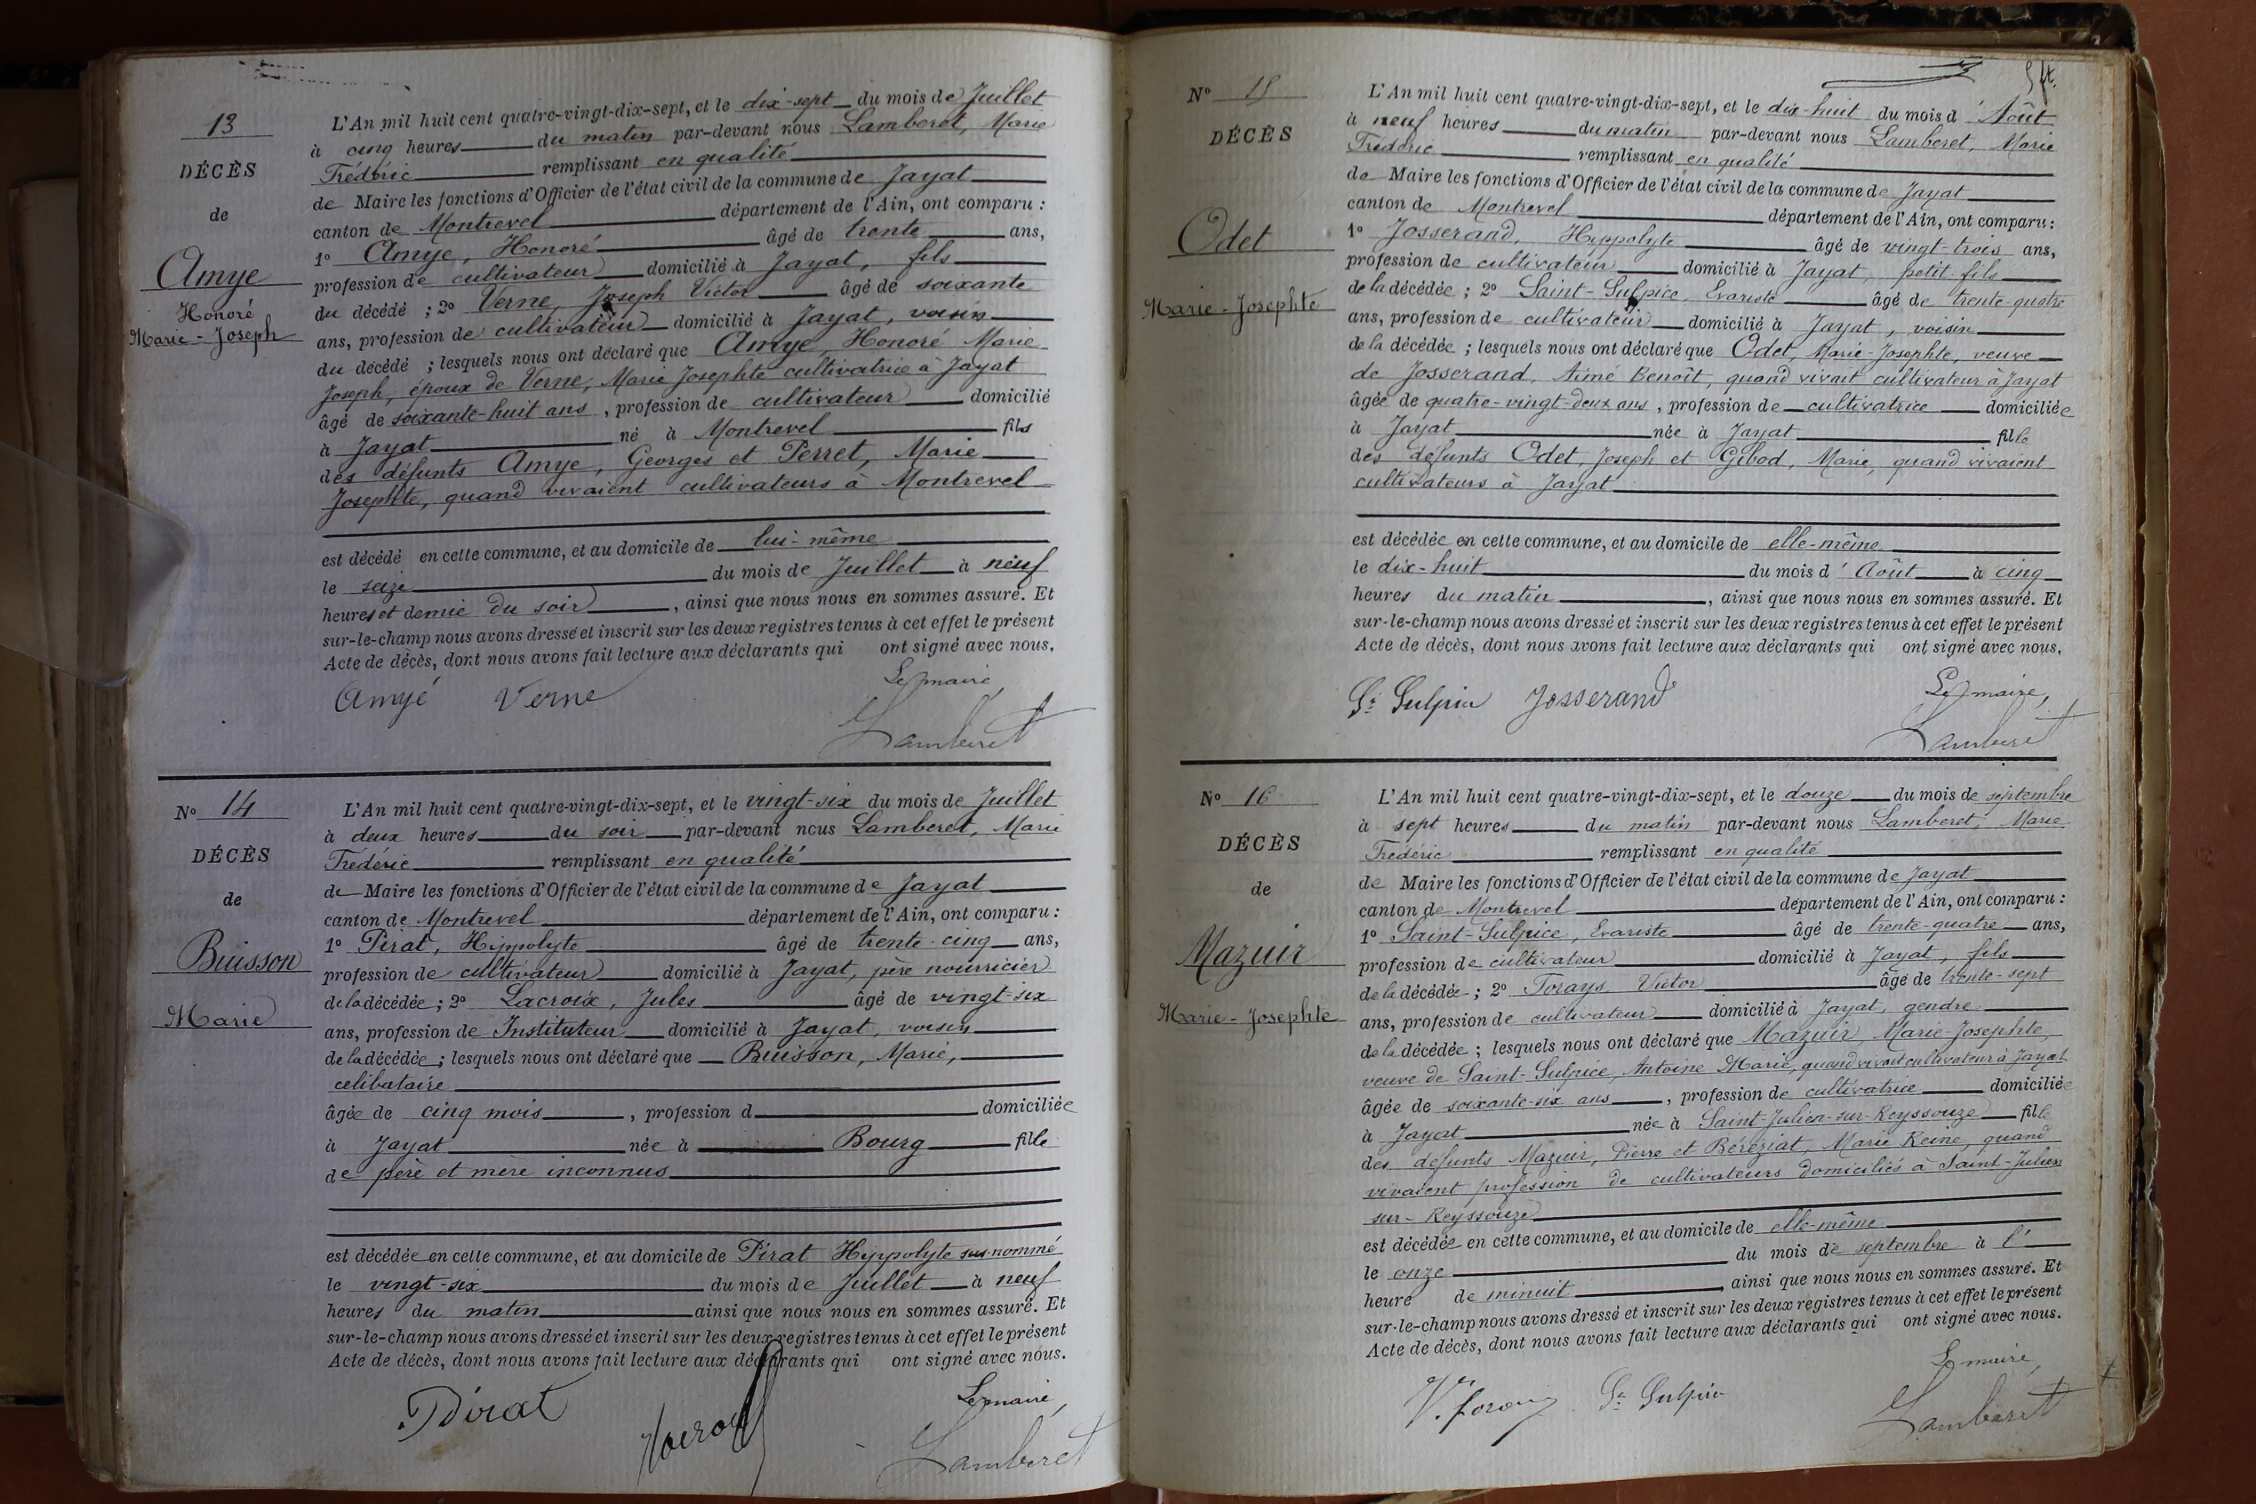 13
DÉCÈS
de
Amye
Honoré
Marie-Joseph
L'An mil huit cent quatre-vingt-dix-sept, et le dix-sept du mois de Juillet
à cinq heures du matin par-devant nous Lamberet, Marie
Frédéric remplissant en qualité
de Maire les fonctions d'Officier de l'état civil de la commune de Jayat
canton de Montrevel département de l'Ain, ont comparu :
1º Amye, Honoré âgé de trente ans,
profession de cultivateur domicilié à Jayat, fils
du décédé ; 2º Verne, Joseph Victor âgé de soixante
ans, profession de cultivateur domicilié à Jayat, voisin
du décédé ; lesquels nous ont déclaré que Amye, Honoré Marie
Joseph, époux de Verne, Marie Josephte cultivatrice à Jayat
âgé de soixante-huit ans, profession de cultivateur domicilié
à Jayat né à Montrevel fils
des défunts Amye, Georges et Perret, Marie
Josephte, quand vivaient cultivateurs à Montrevel
est décédé en cette commune, et au domicile de lui-même
le seize du mois de Juillet à neuf
heures et demie du soir, ainsi que nous nous en sommes assuré. Et
sur-le-champ nous avons dressé et inscrit sur les deux registres tenus à cet effet le présent
Acte de décès, dont nous avons fait lecture aux déclarants qui ont signé avec nous.
Le maire,
Amyé Verne
Lamberet
Nº 14
DÉCÈS
de
Buisson
Marie
L'An mil huit cent quatre-vingt-dix-sept, et le vingt-six du mois de Juillet
à deux heures du soir par-devant nous Lamberet, Marie
Frédéric remplissant en qualité
de Maire les fonctions d'Officier de l'état civil de la commune de Jayat
canton de Montrevel département de l'Ain, ont comparu :
1º Pirat, Hippolyte âgé de trente-cinq ans,
profession de cultivateur domicilié à Jayat, père nourricier
de la décédée ; 2º Lacroix, Jules âgé de vingt-six
ans, profession de Instituteur domicilié à Jayat, voisin
de la décédée ; lesquels nous ont déclaré que Buisson, Marie,
celibataire
âgée de cinq mois, profession d domiciliée
à Jayat née à Bourg fille
de père et mère inconnus
est décédée en cette commune, et au domicile de Pirat Hyppolyte sus-nommé
le vingt-six du mois de Juillet à neuf
heures du matin ainsi que nous nous en sommes assuré. Et
sur-le-champ nous avons dressé et inscrit sur les deux registres tenus à cet effet le présent
Acte de décès, dont nous avons fait lecture aux déclarants qui ont signé avec nous.
Le maire,
Pirat
Lamberet
Nº 15
DÉCÈS
Odet
Marie-Josephte
L'An mil huit cent quatre-vingt-dix-sept, et le dix-huit du mois d'Août
à neuf heures du matin par-devant nous Lamberet, Marie
Frédéric remplissant en qualité
de Maire les fonctions d'Officier de l'état civil de la commune de Jayat
canton de Montrevel département de l'Ain, ont comparu :
1º Josserand, Hyppolyte âgé de vingt-trois ans,
profession de cultivateur domicilié à Jayat, petit-fils
de la décédée ; 2º Saint-Sulpice, Evariste âgé de trente-quatre
ans, profession de cultivateur domicilié à Jayat, voisin
de la décédée ; lesquels nous ont déclaré que Odet, Marie-Josephte, veuve
de Josserand, Aimé Benoît, quand vivait cultivateur à Jayat
âgée de quatre-vingt-deux ans, profession de cultivatrice domiciliée
à Jayat née à Jayat fille
des défunts Odet, Joseph et Gibod, Marie, quand vivaient
cultivateurs à Jayat
est décédée en cette commune, et au domicile de elle-même
le dix-huit du mois d'Août à cinq
heures du matin, ainsi que nous nous en sommes assuré. Et
sur-le-champ nous avons dressé et inscrit sur les deux registres tenus à cet effet le présent
Acte de décès, dont nous avons fait lecture aux déclarants qui ont signé avec nous.
Le maire,
St Sulpice Josserand
Lamberet
Nº 16
DÉCÈS
de
Mazuir
Marie-Josephte
L'An mil huit cent quatre-vingt-dix-sept, et le douze du mois de septembre
à sept heures du matin par-devant nous Lamberet, Marie
Frédéric remplissant en qualité
de Maire les fonctions d'Officier de l'état civil de la commune de Jayat
canton de Montrevel département de l'Ain, ont comparu :
1º Saint-Sulpice, Evariste âgé de trente-quatre ans,
profession de cultivateur domicilié à Jayat, fils
de la décédée ; 2º Forays, Victor âgé de trente-sept
ans, profession de cultivateur domicilié à Jayat, gendre
de la décédée ; lesquels nous ont déclaré que Mazuir, Marie-Josephte,
veuve de Saint-Sulpice, Antoine Marie, quand vivait cultivateur à Jayat
âgée de soixante-six ans, profession de cultivatrice domiciliée
à Jayat née à Saint-Julien-sur-Reyssouze fille
des défunts Mazuir, Pierre et Béréziat, Marie Reine, quand
vivaient profession de cultivateurs domiciliés à Saint-Julien
sur-Reyssouze
est décédée en cette commune, et au domicile de elle-même
le onze du mois de septembre à l'
heure de minuit ainsi que nous nous en sommes assuré. Et
sur-le-champ nous avons dressé et inscrit sur les deux registres tenus à cet effet le présent
Acte de décès, dont nous avons fait lecture aux déclarants qui ont signé avec nous.
Le maire,
St Sulpice
Lamberet